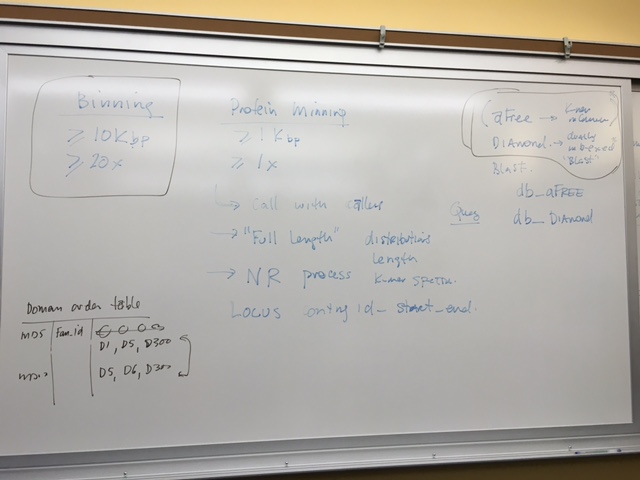 Binning
≥ 10Kbp
≥ 20x
Protein Minning
≥ 1 Kbp
≥ 1x
→ Call with callers
→ "Full Length" distributions
length
→ NR process Kmer spectra.
LOCUS contig id_ start_end.
(aFree →
DIAMOND → doubly indexed
"Blast"
Blast.
db_aFREE
Query db_DIAMOND
Domain order table
MD5 Fam_id
D1, D5, D300
D5, D6, D300